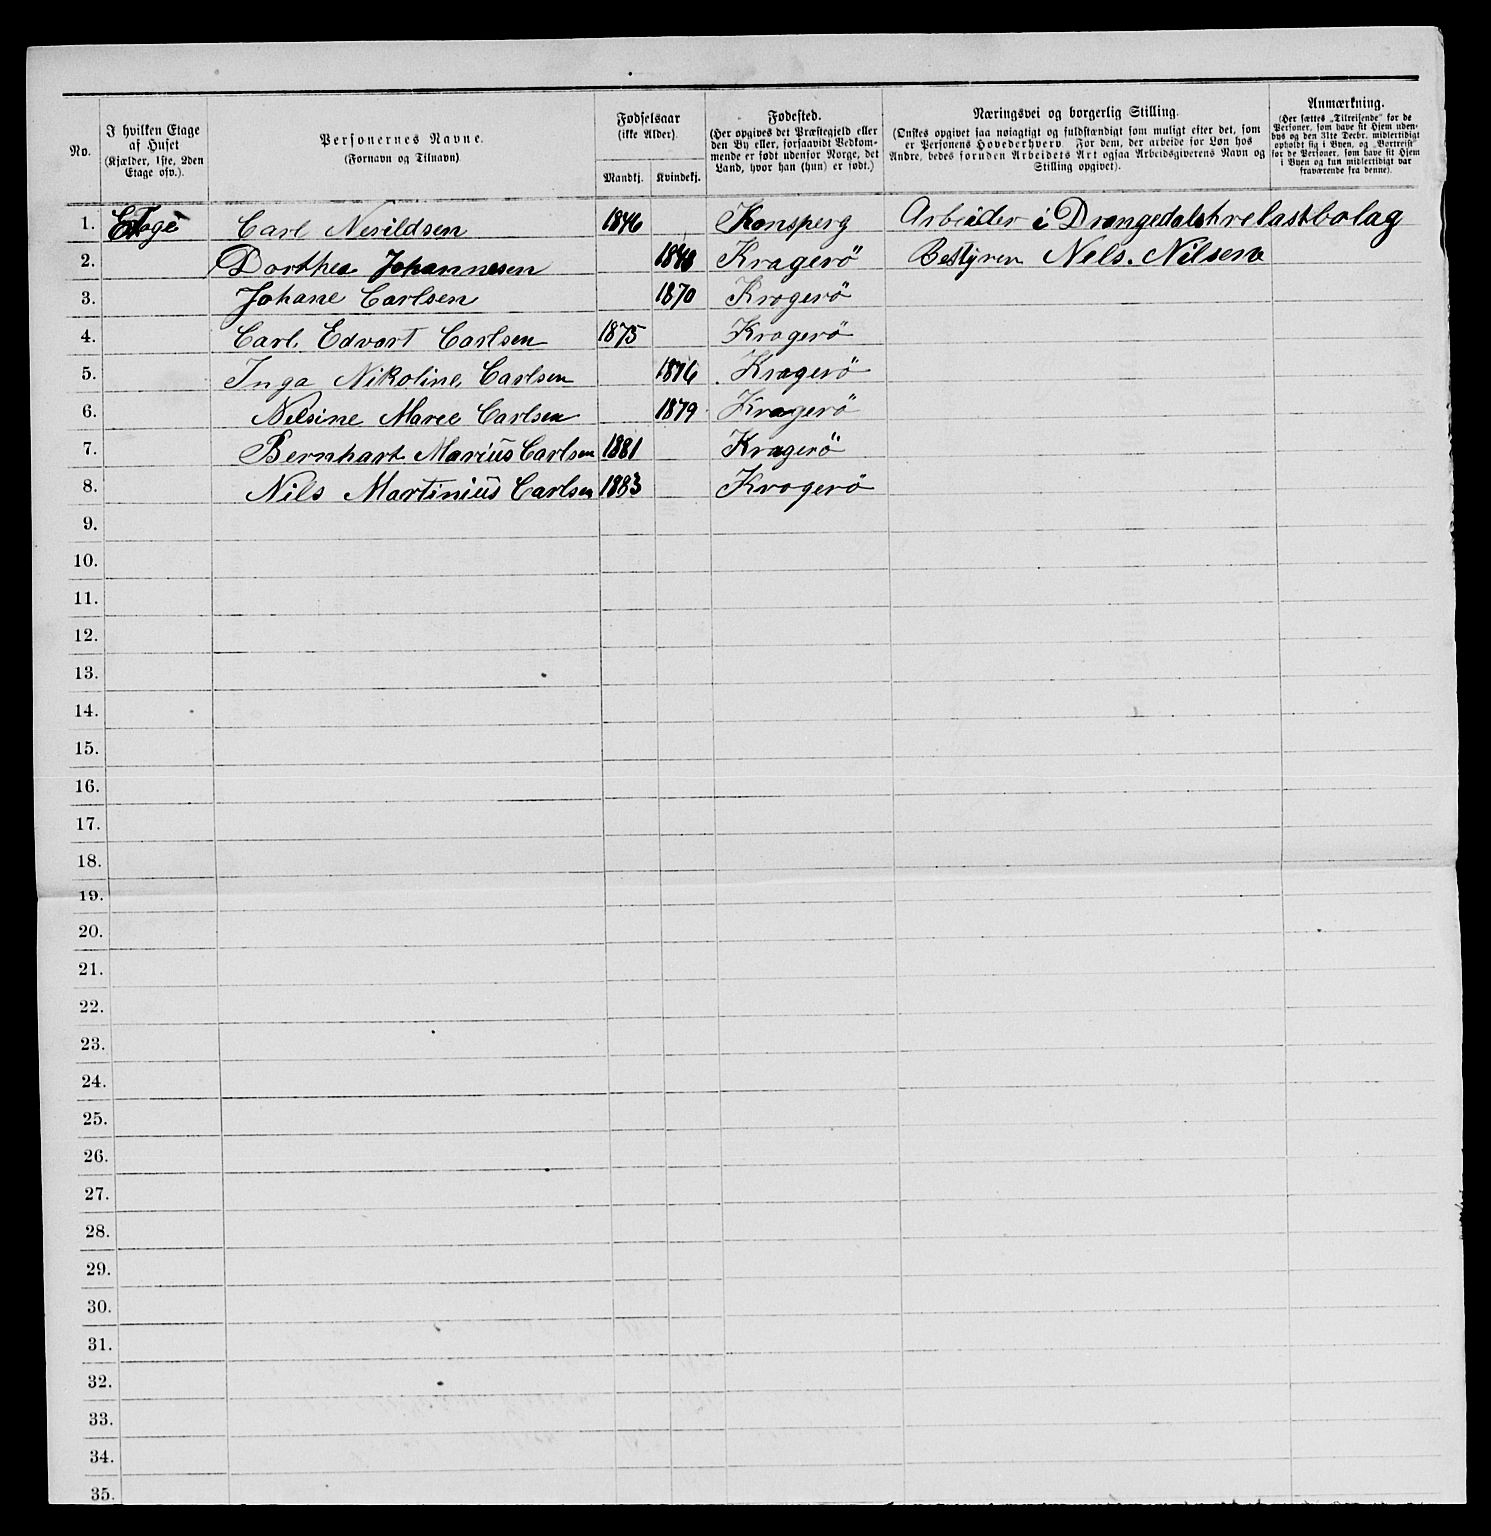 No.
I hvilken Etage af Huset (Kjælder, 1ste, 2den Etage osv.).
Personernes Navne. (Fornavn og Tilnavn)
Fødselsaar (ikke Alder).
Mandkj. Kvindekj.
Fødested. (Her opgives det Præstegjeld eller den By eller, forsaavidt Vedkommende er født udenfor Norge, det Land, hvor han (hun) er født.)
Næringsvei og borgerlig Stilling. (Ønskes opgivet saa nøiagtigt og fuldstændigt som muligt efter det, som er Personens Hovederhverv. For dem, der arbeide for Løn hos Andre, bedes foruden Arbeidets Art ogsaa Arbeidsgiverens Navn og Stilling opgivet).
Anmærkning. (Her sættes „Tilreisende“ for de Personer, som have sit Hjem udenbys og den 31te Decbr. midlertidigt opholdt sig i Byen, og „Bortreist“ for de Personer, som have sit Hjem i Byen og kun midlertidigt var fraværende fra denne).
1. Etage Carl Nerildsen 1846 Konsperg Arbeider i Drangedalstrelastbolag
2. Dorthea Johannesen 1848 Kragerö Bestyren Nels. Nilsen
3. Johane Carlsen 1870 Kragerö
4. Carl Edvart Carlsen 1875 Kragerö
5. Inga Nikoline Carlsen 1876 Kragerö
6. Nelsine Maree Carlsen 1879 Kragerö
7. Bernhart Marius Carlsen 1881 Kragerö
8. Nils Martinius Carlsen 1883 Kragerö
9.
10.
11.
12.
13.
14.
15.
16.
17.
18.
19.
20.
21.
22.
23.
24.
25.
26.
27.
28.
29.
30.
31.
32.
33.
34.
35.